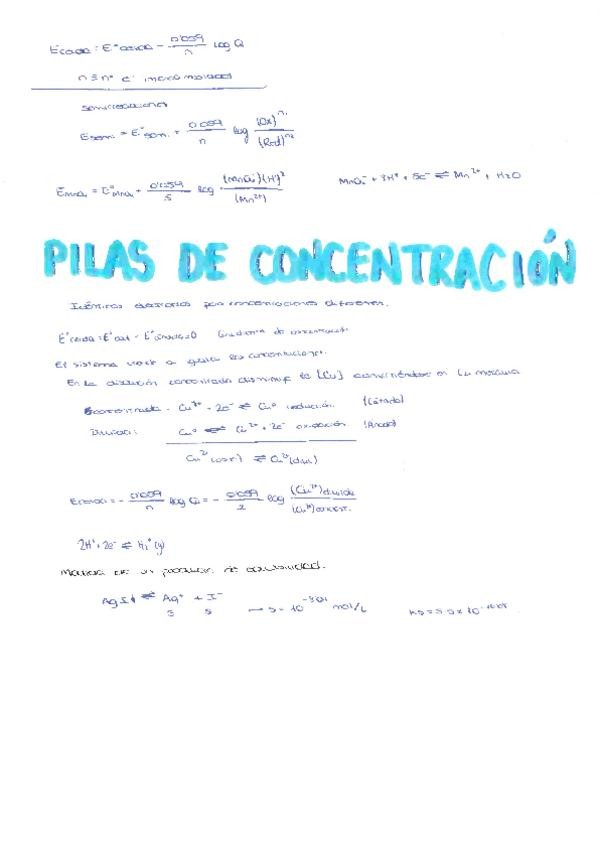 Ecelda = E°celda - 0'059/n log Q
n = nº e- intercambiados
Semirreacciones
Esem. = E°sem. + 0'059/n log (Ox)^n1/(Red)^n2
EMnO4 = E°MnO4 + 0'059/5 log (MnO4-)(H+)^8/(Mn2+)
MnO4- + 8H+ + 5e- ⇌ Mn2+ + H2O
PILAS DE CONCENTRACIÓN
Idénticos electrodos pero concentraciones diferentes.
E°celda = E°cat - E°ánodo = 0 Gradiente de concentración
El sistema tiende a igualar las concentraciones.
En la disolución concentrada disminuye la [Cu] convirtiéndose en Cu
Concentrada: Cu2+ + 2e- ⇌ Cu° reducción (Cátodo)
Diluida: Cu° ⇌ Cu2+ + 2e- oxidación (Ánodo)
Cu2+ (conc) ⇌ Cu2+ (dil)
Ecelda = - 0'059/n log Q = - 0'059/2 log (Cu2+)diluida/(Cu2+)concent.
2H+ + 2e- ⇌ H2 (g)
Medida de un producto de solubilidad.
AgI↓ ⇌ Ag+ + I-
s s → s = 10 mol/L